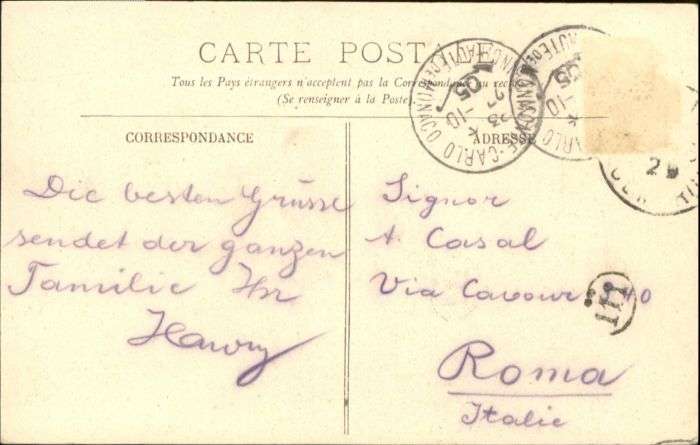 CARTE POSTALE
Tous les Pays étrangers n'acceptent pas la Correspondance au recto
(Se renseigner à la Poste)
CORRESPONDANCE
ADRESSE
Die besten Grüsse
sendet der ganzen
Familie Ihr
Signor
A. Casal
Via Cavour 40
Roma
Italie
MONTE-CARLO
PRINCIPAUTÉ DE MONACO
23 -10
05
CARLO
-10
05
29